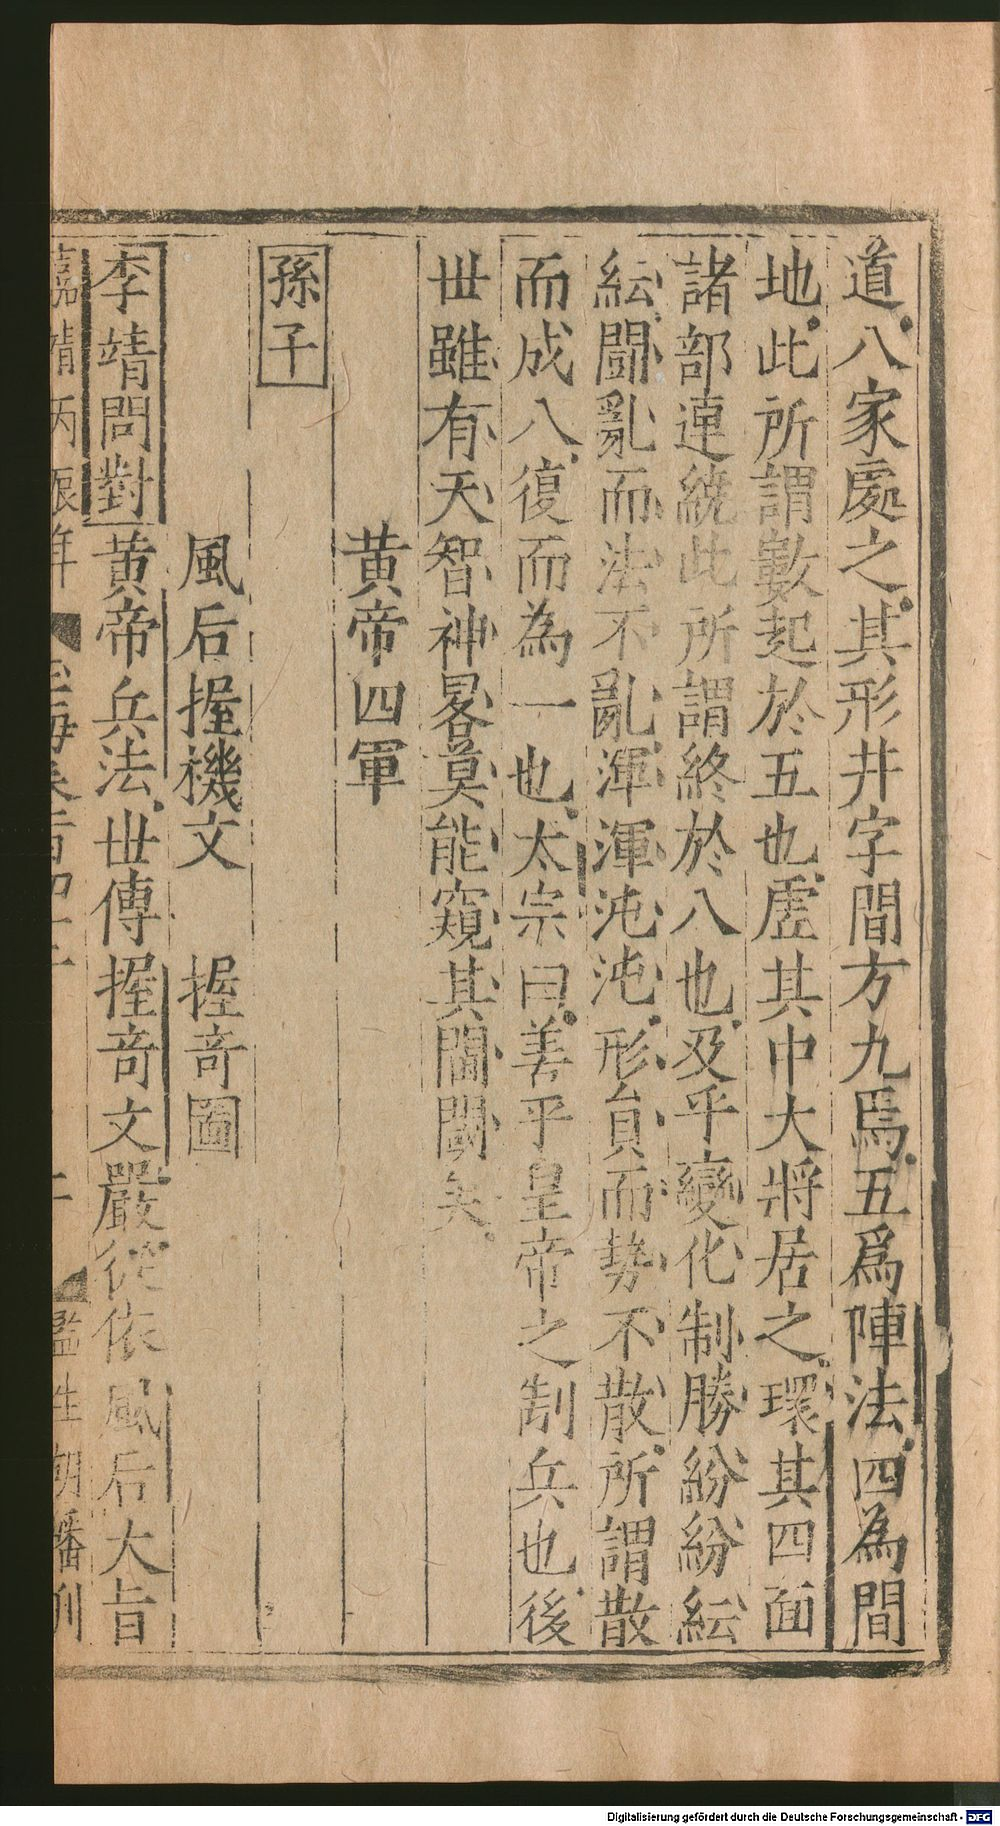 道八家處之其形井字間方九焉五爲陣法四為間
地此所謂數起於五也虛其中大將居之環其四面
諸部連繞此所謂終於八也及乎變化制勝紛紛紜
紜鬪亂而法不亂渾渾沌沌形貟而势不散所謂散
而成八復而為一也太宗曰善乎皇帝之制兵也後
丗雖有天智神畧莫能窺其閫閾矣
黄帝四軍
孫子
風后握機文 握竒圖
李靖問對黄帝兵法丗傳握竒文嚴從依風后大旨
嘉靖丙辰年 玉海卷百四十 監生胡播刊
Digitalisierung gefördert durch die Deutsche Forschungsgemeinschaft - DFG